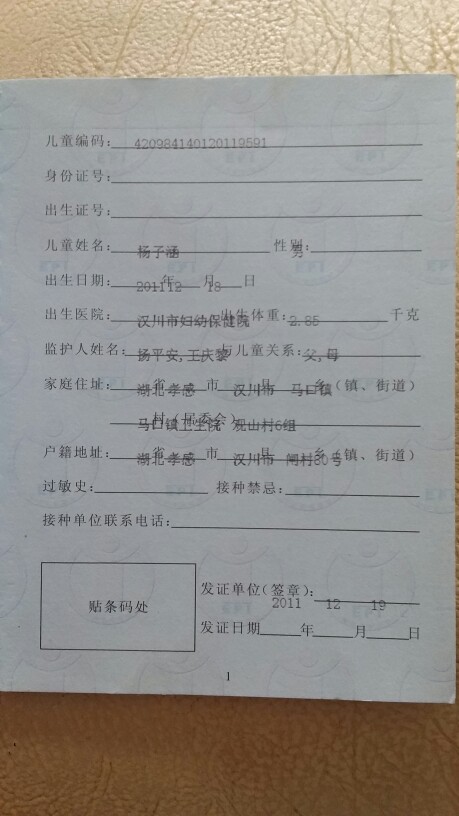 儿童编码：420984140120119591
身份证号：
出生证号：
儿童姓名：杨子涵 性别：男
出生日期：2011年12月18日
出生医院：汉川市妇幼保健院 出生体重：2.85 千克
监护人姓名：杨平安,王庆黎 与儿童关系：父,母
家庭住址：湖北省孝感市汉川市县马口镇乡（镇、街道）
马口镇卫生院 村（居委会）观山村6组
户籍地址：湖北省孝感市汉川市县闸村80号乡（镇、街道）
过敏史： 接种禁忌：
接种单位联系电话：
贴条码处
发证单位（签章）：
发证日期 2011年12月19日
1